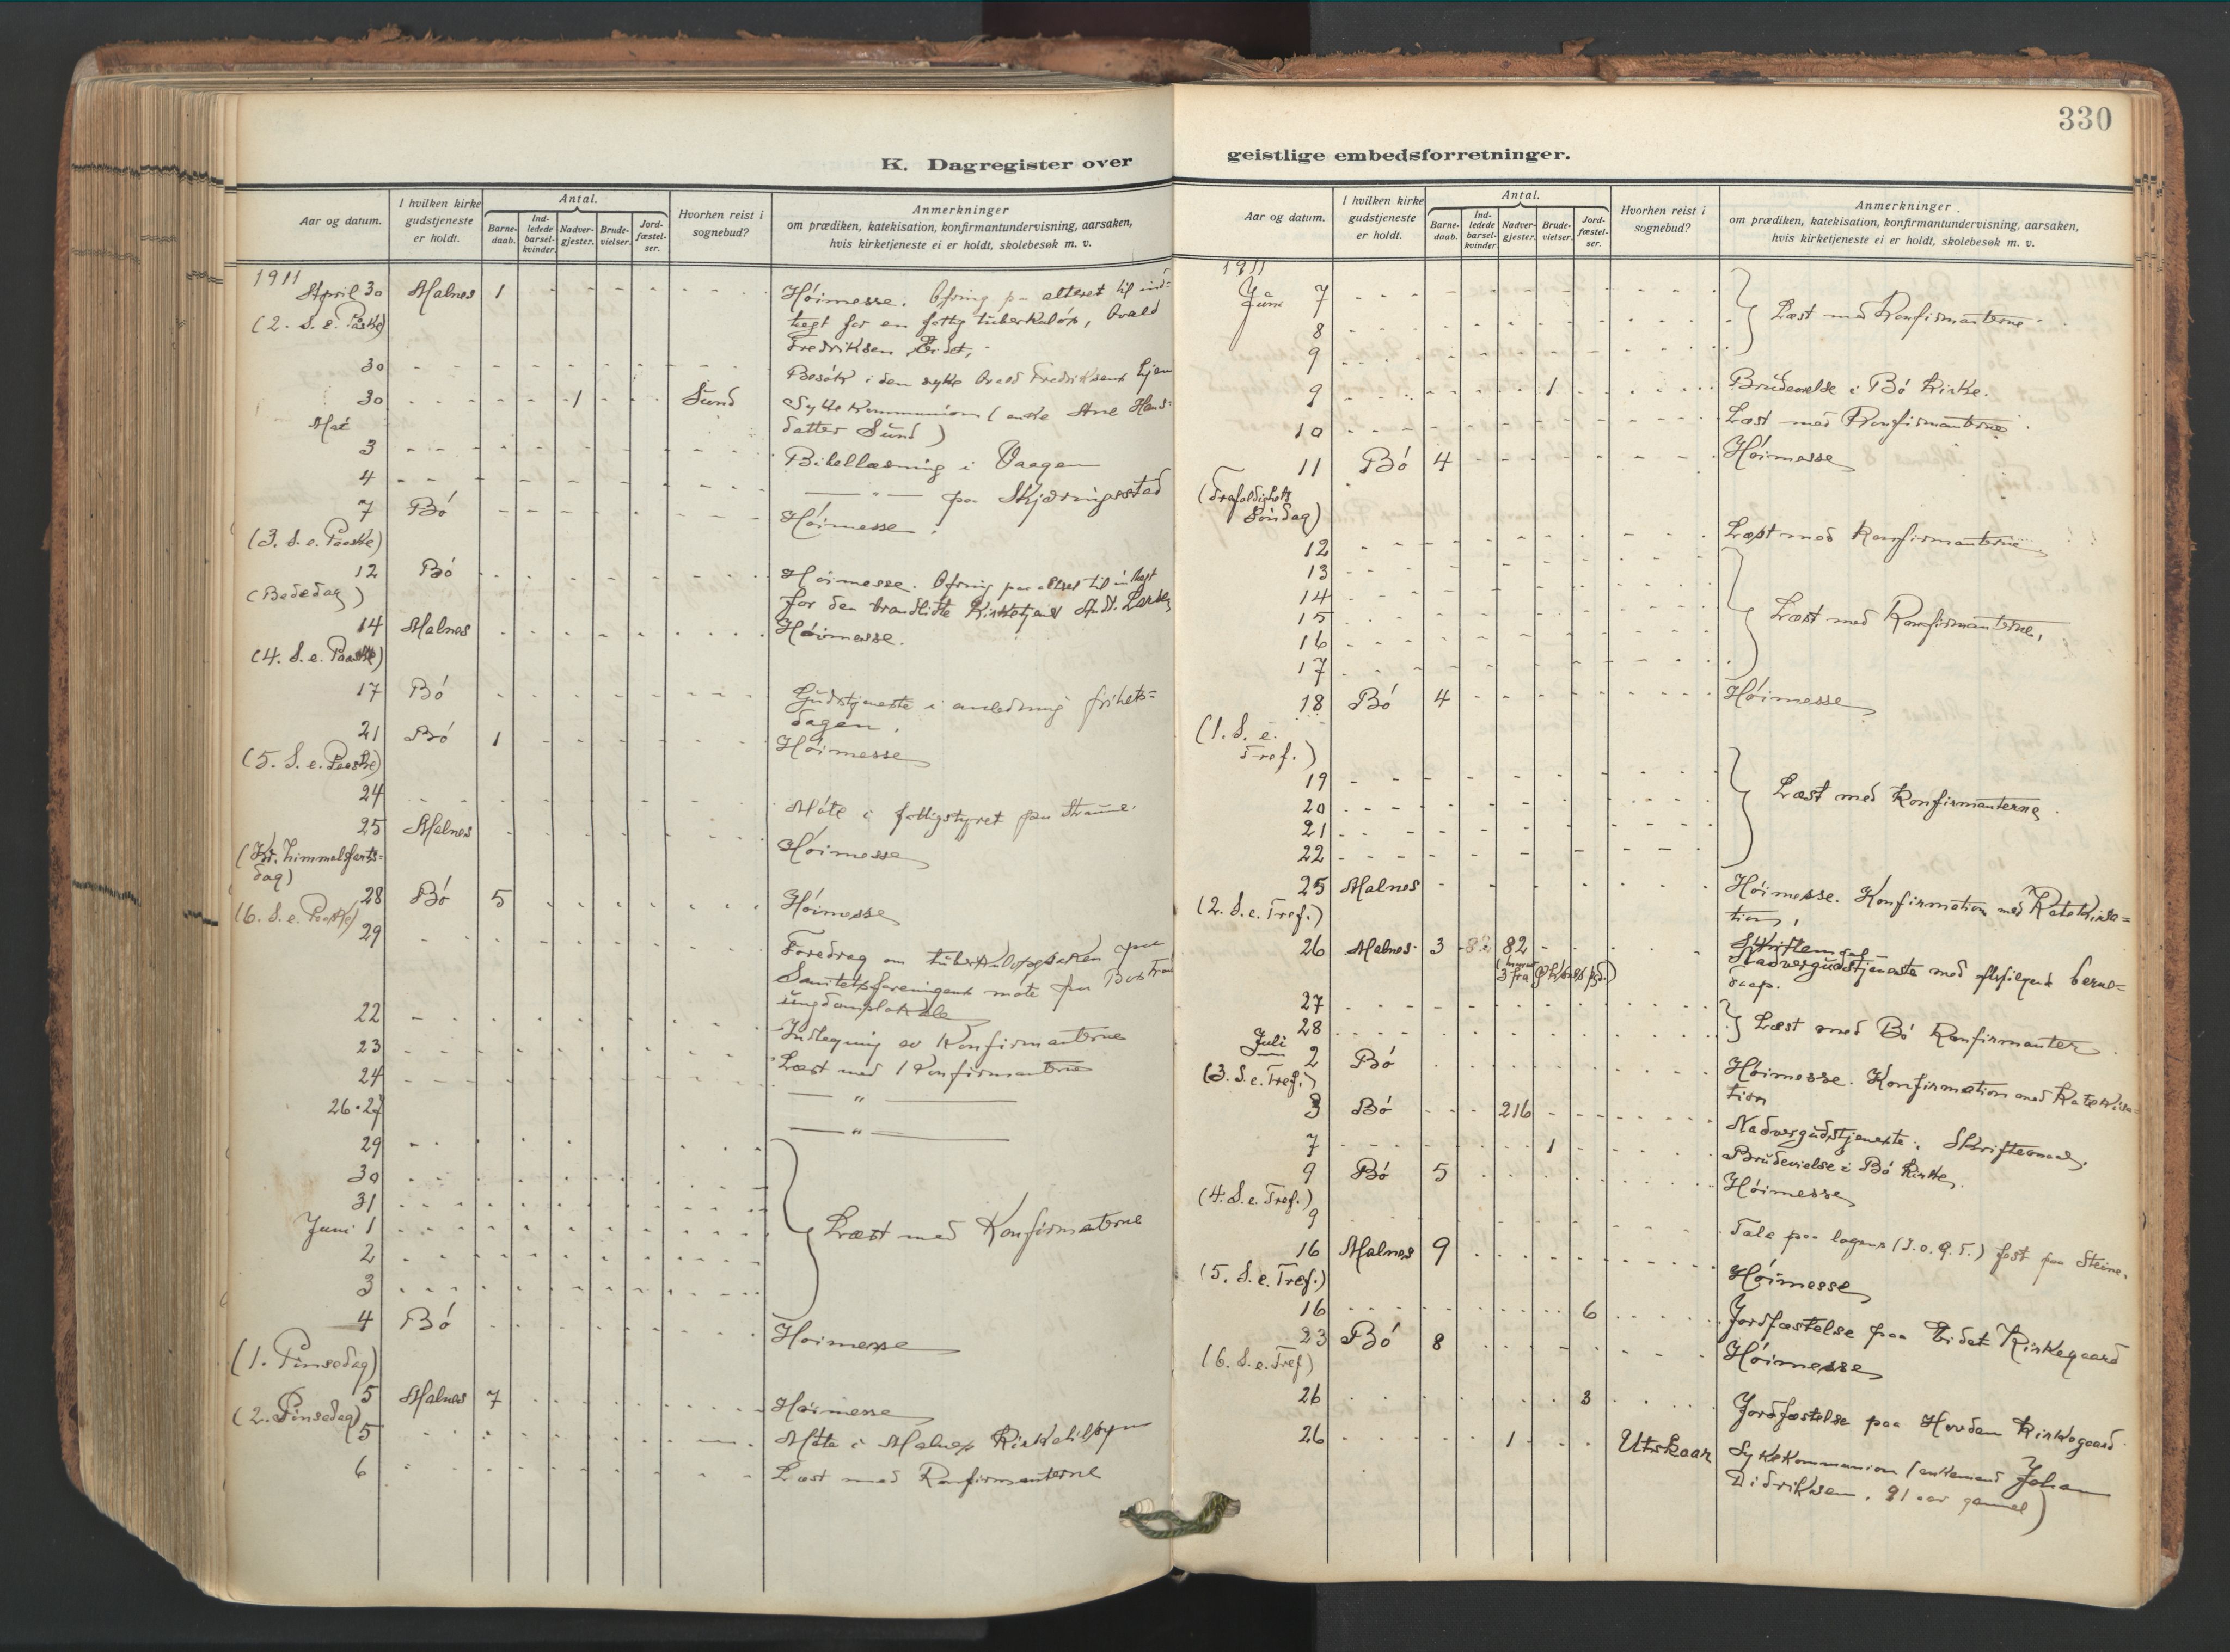 K. Dagregister over
Aar og datum.
I hvilken kirke gudstjeneste er holdt.
Antal.
Barne-daab.
Ind-ledede barsel-kvinder.
Nadver-gjester.
Brude-vielser.
Jord-fæstel-ser.
Hvorhen reist i sognebud?
Anmerkninger
om prædiken, katekisation, konfirmantundervisning, aarsaken,
hvis kirketjeneste ei er holdt, skolebesøk m. v.
1911
April 30 Malnes 1 Høimesse. Ofring paa alteret til ind-
(2. S. e. Paaske) tægt for en fattig tuberkuløs, Ovald
Fredriksen Eidet.
30 Besøk i den syke Ovald Fredriksens hjem
30 1 Sund Sykekommunion (enke Ane Hans-
Mai datter Sund)
3 Bibellæsning i Vaagen
4 — " — paa Skjæringsstad
7 Bø Høimesse.
(3. S. e. Paaske)
12 Bø Høimesse. Ofring paa alteret til indtægt
(Bededag) for den brandlidte Kirketjener Andr. Larsen
14 Malnes Høimesse.
(4. S. e. Paaske)
17 Bø Gudstjeneste i anledning frihets-
dagen.
21 Bø 1 Høimesse
(5. S. e. Paaske)
24 Møte i fattigstyret paa Straume.
25 Malnes Høimesse
(Kr. himmelfarts-
dag)
28 Bø 5 Høimesse
(6. S. e. Paaske)
29 Foredrag om tuberkulosesaken paa
Sanitetsforeningens møte paa
ungdomslokale
22 Indtegning av Konfirmanterne
23 Læst med Konfirmanterne
24 — " —
26 · 27 — " —
29
30
31
Juni 1 Læst med Konfirmanterne
2
3
4 Bø Høimesse
(1. Pinsedag)
5 Malnes 7 Høimesse
(2. Pinsedag)
5 Møte i Malnes Kirketilsyn
6 Læst med Konfirmanterne
330
geistlige embedsforretninger.
Aar og datum.
I hvilken kirke gudstjeneste er holdt.
Antal.
Barne-daab.
Ind-ledede barsel-kvinder.
Nadver-gjester.
Brude-vielser.
Jord-fæstel-ser.
Hvorhen reist i sognebud?
Anmerkninger
om prædiken, katekisation, konfirmantundervisning, aarsaken,
hvis kirketjeneste ei er holdt, skolebesøk m. v.
1911
Juni 7 Læst med Konfirmanterne
8
9
9 1 Brudevielse i Bø Kirke.
10 Læst med Konfirmanterne
11 Bø 4 Høimesse
(Trefoldighets
Søndag)
12 Læst med Konfirmanterne
13
14
15 Læst med Konfirmanterne.
16
17
18 Bø 4 Høimesse
(1. S. e.
Tref.)
19
20 Læst med Konfirmanterne
21
22
25 Malnes Høimesse. Konfirmation med Katekisa-
(2. S. e. Tref.) tion.
26 Malnes 3 82 82 Skriftemaal
Nadvergudstjeneste med efterfølgende barne-
daap.
27
28 Læst med Bø Konfirmanter
Juli 2 Bø Høimesse. Konfirmation med Katekisa-
(3. S. e. Tref.) tion
3 Bø 216 Nadvergudstjeneste. Skriftemaal.
7 1 Brudevielse i Bø Kirke.
9 Bø 5 Høimesse
(4. S. e. Tref.)
9 Tale paa logens (I. O. G. T.) fest paa Steine.
16 Malnes 9 Høimesse
(5. S. e. Tref.)
16 6 Jordfæstelse paa Eidet Kirkegaard
23 Bø 8 Høimesse
(6. S. e. Tref)
26 3 Jordfæstelse paa Hovden Kirkegaard
26 1 Utskaar Sykekommunion (enkemand Johan
Didriksen, 91 aar gammel)